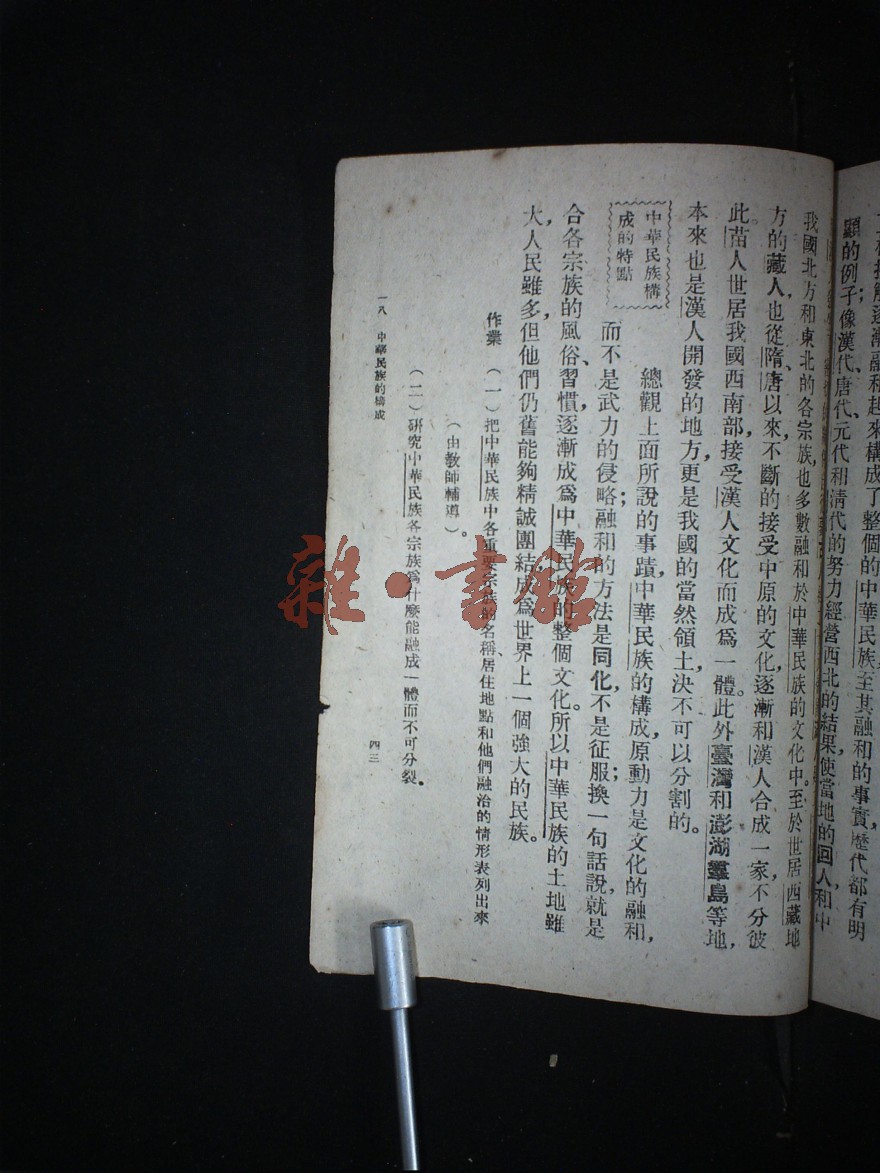 逐漸融和起來構成了整個的中華民族至其融和的事實，歷代都有明
顯的例子；像漢代、唐代、元代和清代的努力經營西北的結果，使當地的回人和中
我國北方和東北的各宗族，也多數融和於中華民族的文化中。至於世居西藏地
方的藏人，也從隋、唐以來，不斷的接受中原的文化，逐漸和漢人合成一家，不分彼
此。苗人世居我國西南部，接受漢人文化而成爲一體。此外臺灣和澎湖羣島等地，
本來也是漢人開發的地方，更是我國的當然領土，決不可以分割的。
中華民族構
成的特點
總觀上面所說的事蹟，中華民族的構成，原動力是文化的融和，
而不是武力的侵略；融和的方法是同化，不是征服；換一句話說，就是
合各宗族的風俗、習慣，逐漸成爲中華民族的整個文化。所以中華民族的土地雖
大，人民雖多，但他們仍舊能夠精誠團結，成爲世界上一個強大的民族。
作業 （一）把中華民族中各重要宗族的名稱、居住地點和他們融洽的情形表列出來
（由教師輔導）。
（二）研究中華民族各宗族爲什麼能融成一體而不可分裂。
一八 中華民族的構成
四三
雜·書館